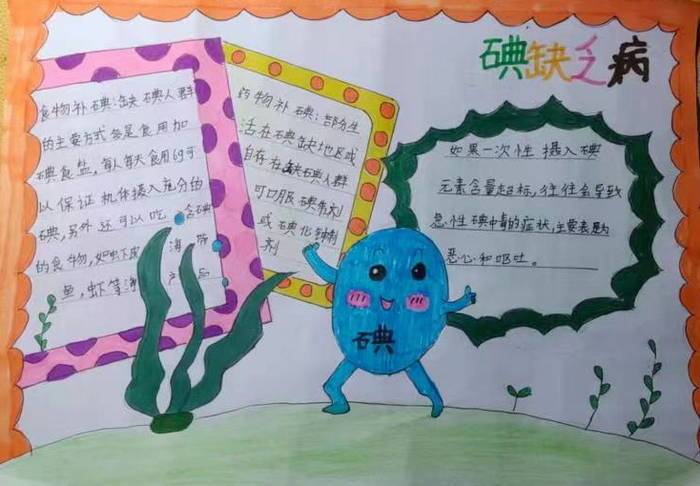 碘缺乏病
食物补碘:缺碘人群
的主要方式多是食用加
碘食盐,每人每天食用6g可
以保证机体摄入充分的
碘,另外还可以吃含碘
的食物,如虾皮 海带
鱼,虾等海产品
药物补碘:部分生
活在碘缺地区或
自存在缺碘人群
可口服碘制剂
或碘化钾制
剂
如果一次性摄入碘
元素含量超标,往往会导致
急性碘中毒的症状,主要表现
恶心和呕吐。
碘